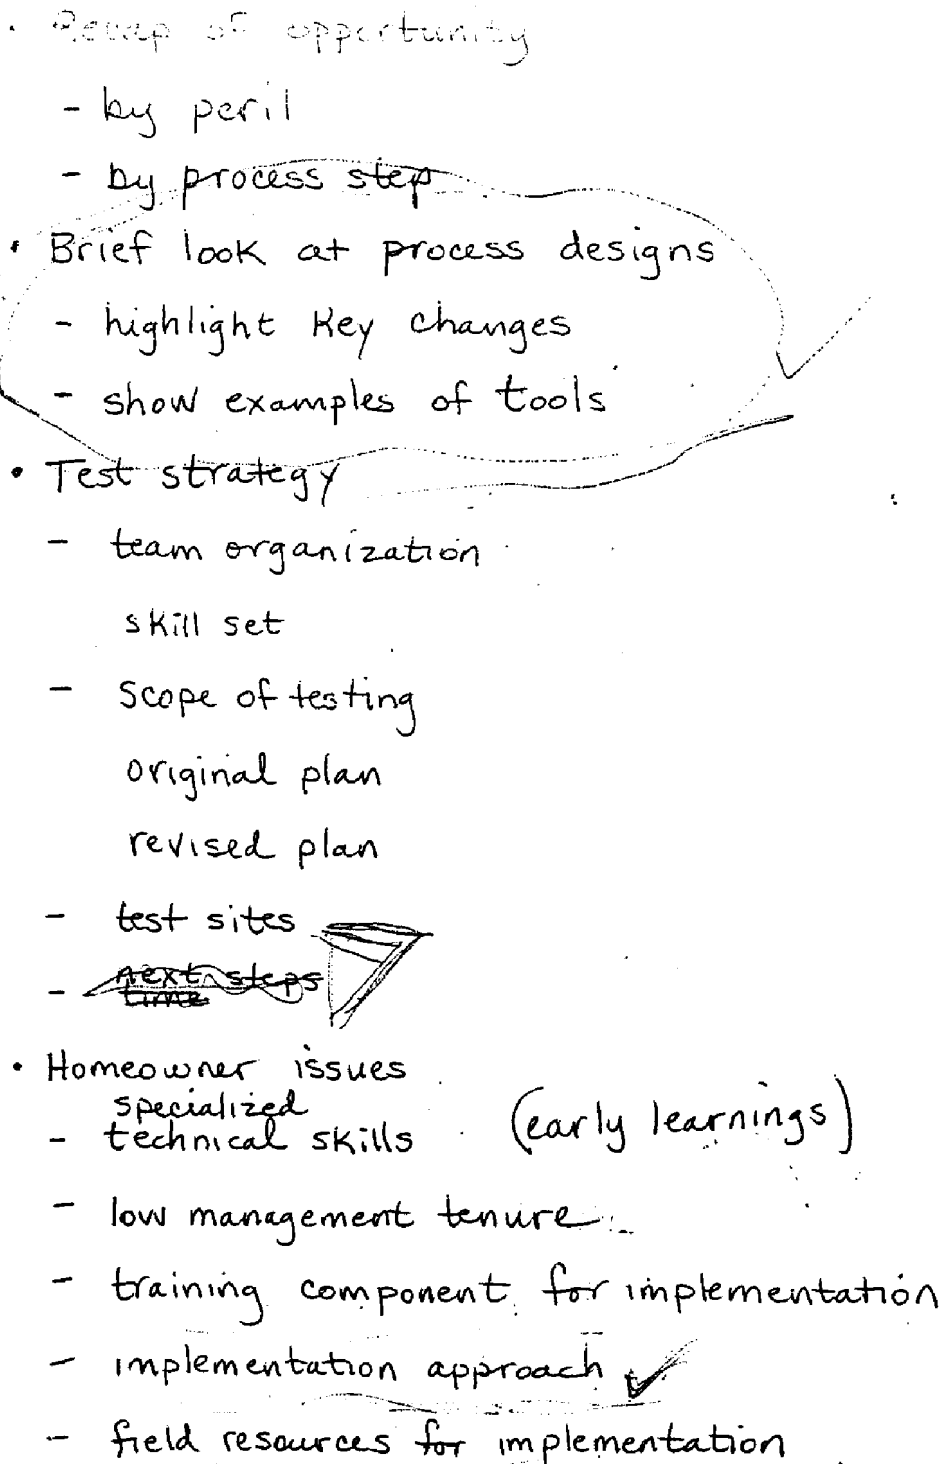 • Recap of opportunity
- by peril
- by process step
• Brief look at process designs
- highlight key changes
- show examples of tools
• Test strategy
- team organization
skill set
- scope of testing
original plan
revised plan
- test sites
- next steps
time
• Homeowner issues
specialized
- technical skills (early learnings)
- low management tenure
- training component for implementation
- implementation approach
- field resources for implementation